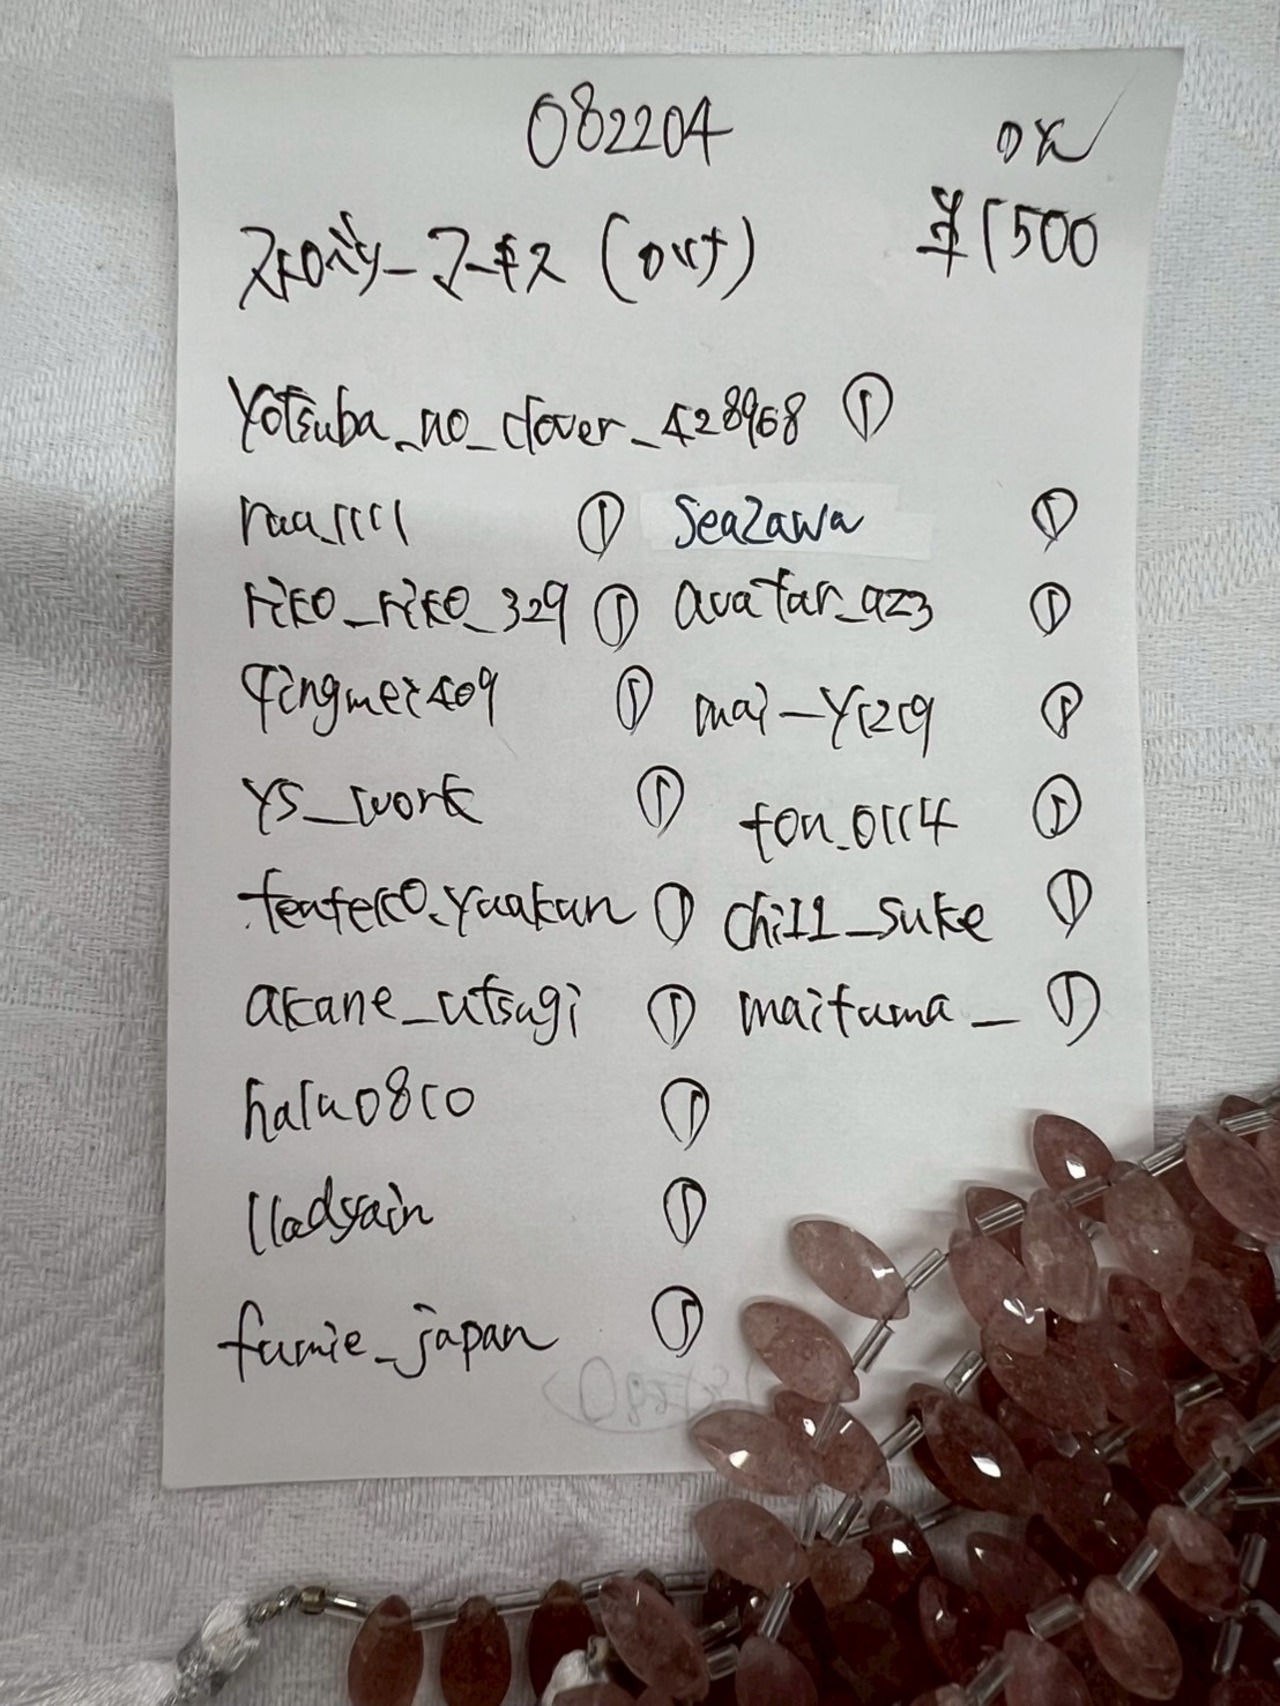 082204
OK
ストロベリーマーキス (ロット) ¥1500
yotsuba_no_clover_428968 ①
raa_1111 ① seazawa ①
riko_riko_329 ① avatar_az3 ①
qingmei409 ① mai-y1219 ①
ys_work ① ton_0114 ①
tenteko_yuukun ① chill_suke ①
akane_utsugi ① maituma_ ①
halu0810 ①
lladyain ①
fumie_japan ①